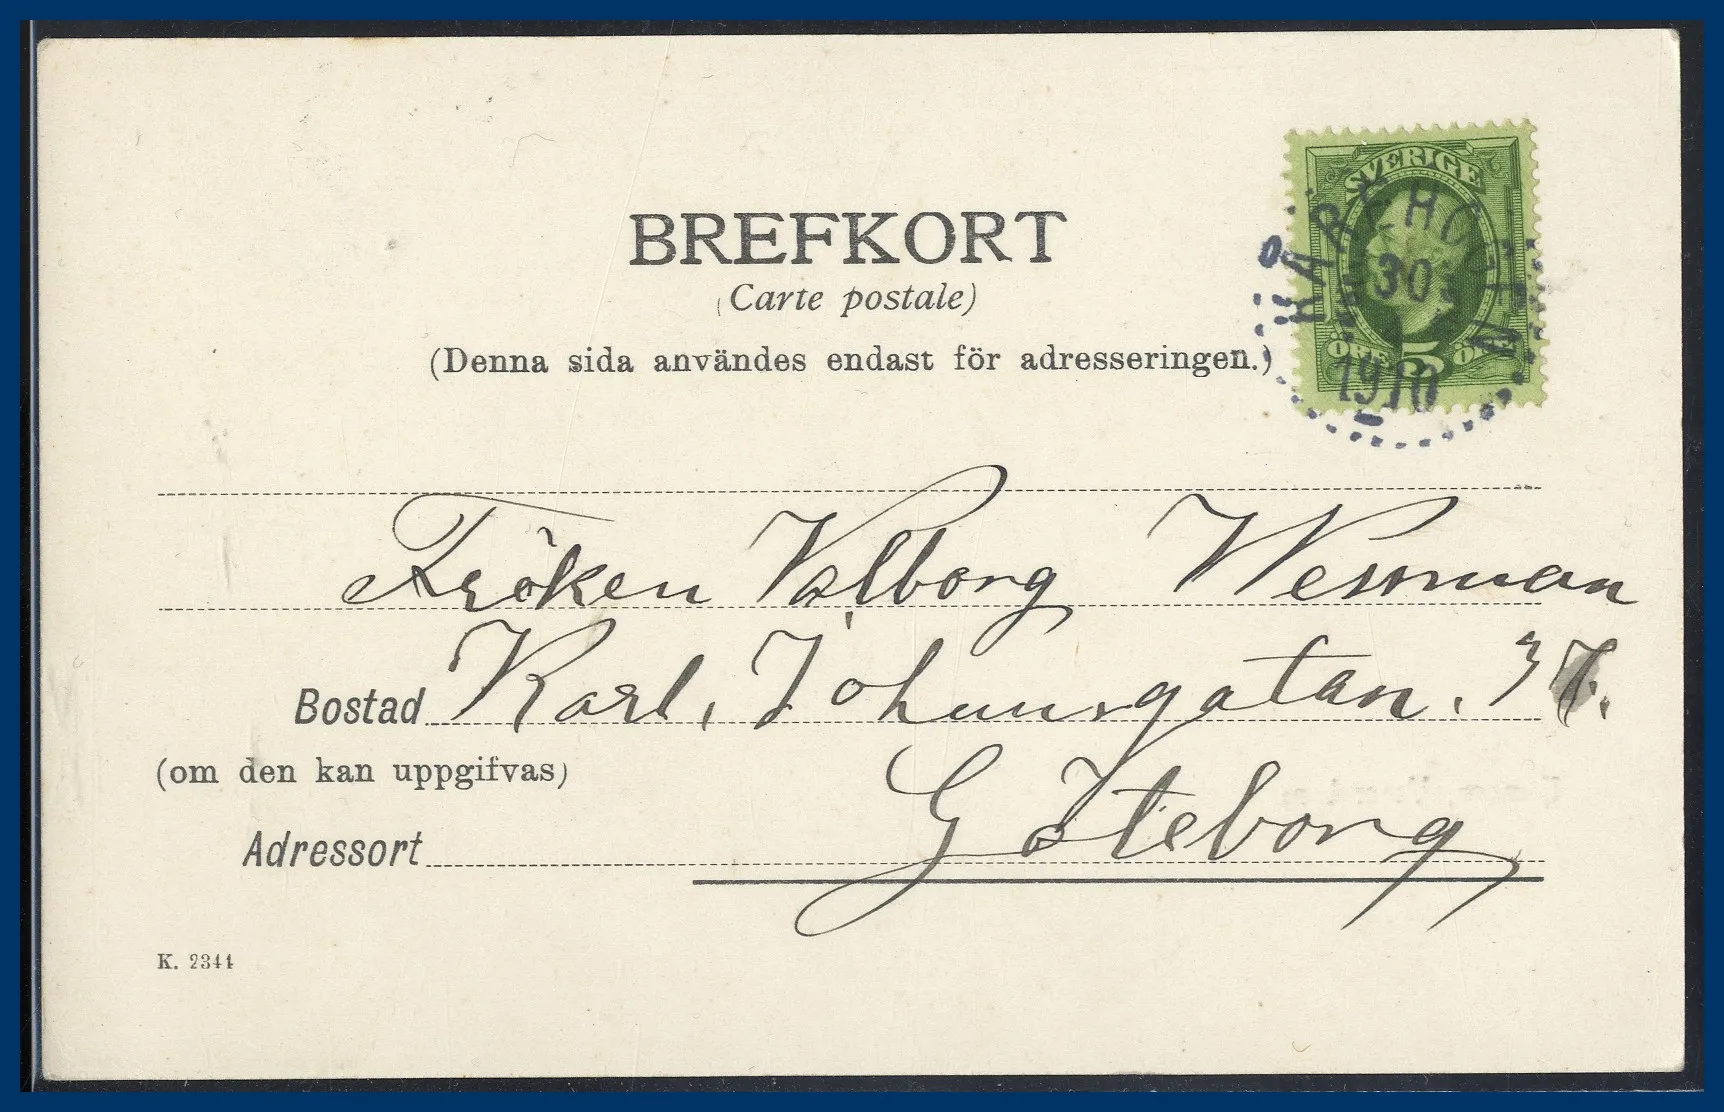 SVERIGE
30
ÖRE 5 ÖRE
1910
BREFKORT
(Carte postale)
(Denna sida användes endast för adresseringen.)
Fröken Valborg Wessman
Bostad Karl, Johansgatan.
(om den kan uppgifvas)
Adressort Göteborg
K. 2344